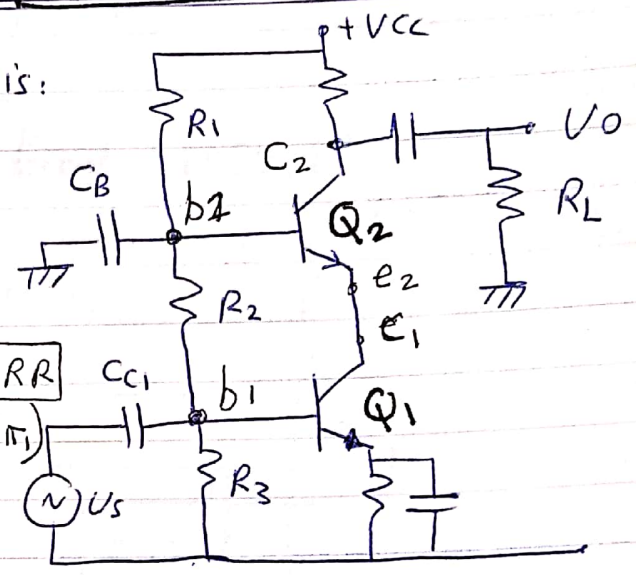 +VCC
is:
R1
C2
VO
CB
b2
Q2
RL
e2
R2
C1
RR
CC1
b1
Q1
π1)
R3
Us